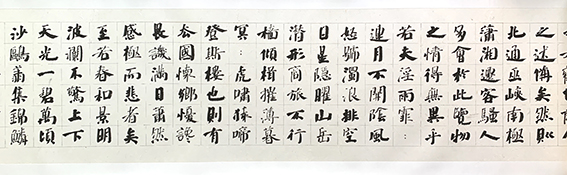 之述備矣然則
北通巫峽南極
瀟湘遷客騷人
多會於此覽物
之情得無異乎
若夫淫雨霏：
連月不開陰風
怒號濁浪排空
日星隱曜山岳
潛形商旅不行
檣傾楫摧薄暮
冥：虎嘯猿啼
登斯樓也則有
去國懷鄉憂讒
畏譏滿目蕭然
感極而悲者矣
至若春和景明
波瀾不驚上下
天光一碧萬頃
沙鷗翔集錦鱗